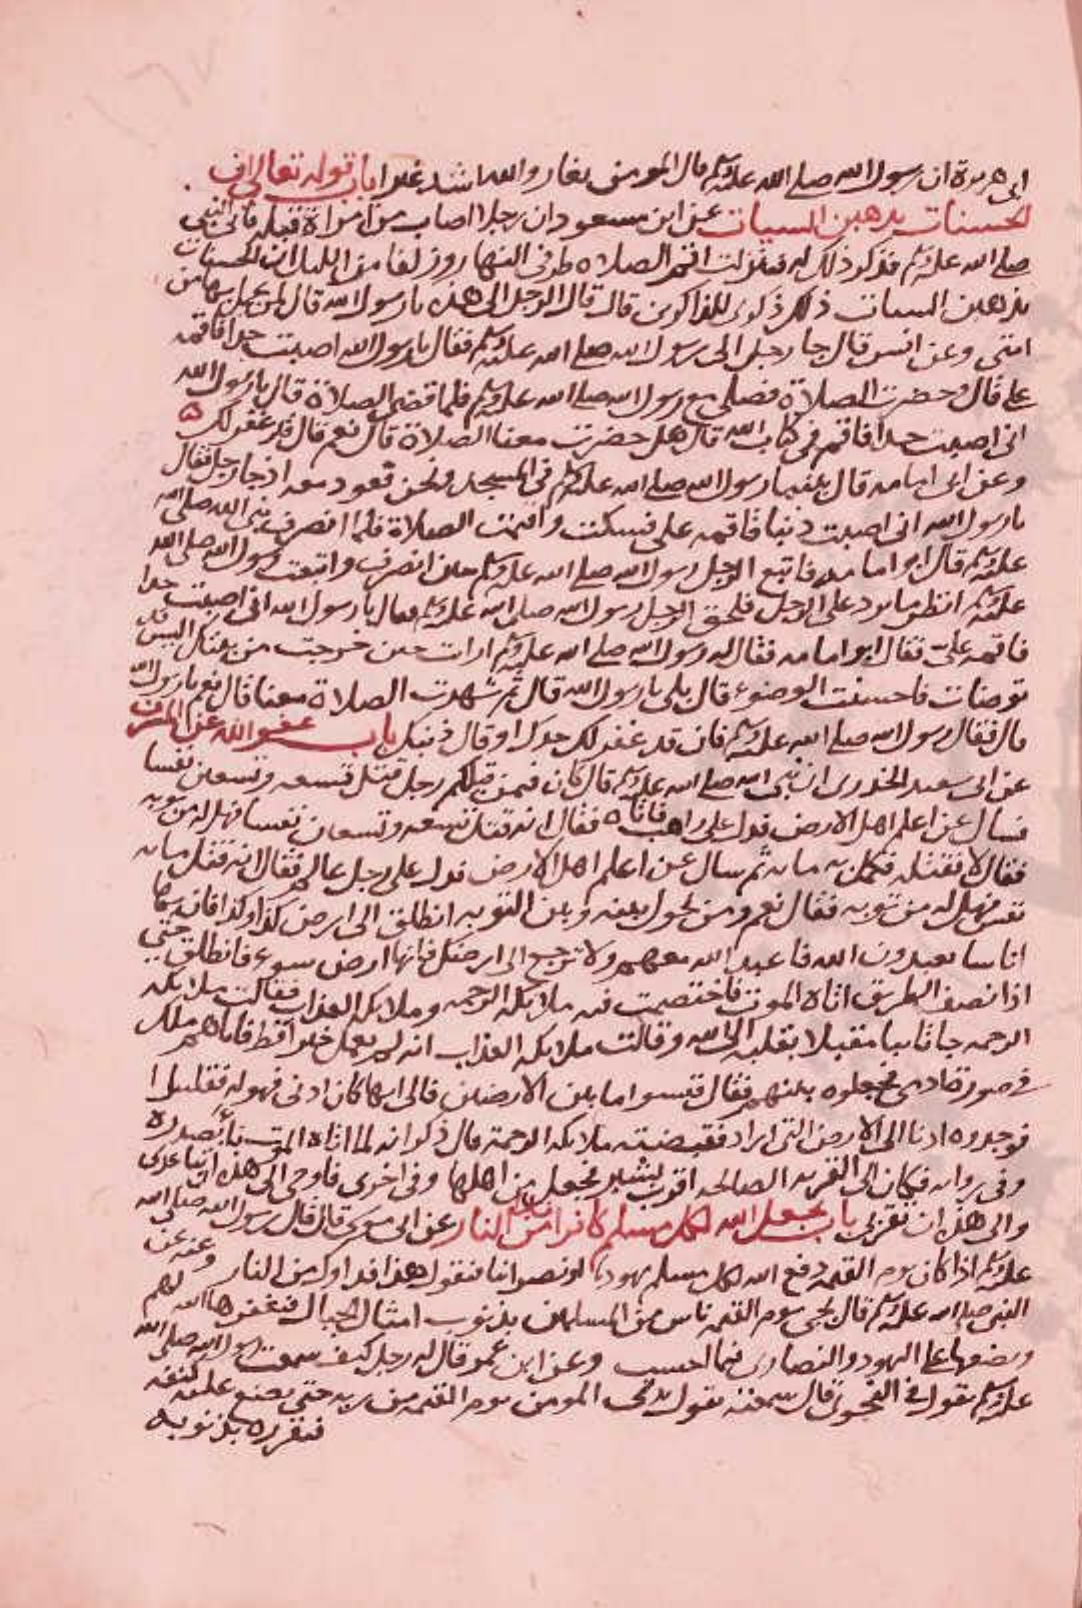 ابى هريرة ان رسول الله صلى الله عليه وسلم قال المومن يغار والله اشد غيرا باب قوله تعالى ان
الحسنات يذهبن السيات عن ابن مسعود ان رجلا اصاب من امراة قبله فاتى النبي
صلى الله عليه وسلم فذكر ذلك له فنزلت اقم الصلاه طرفى النهار وزلفا من الليل ان الحسنات
يذهبن السيات ذلك ذكرى للذاكرين قال قال الرجل الى هذه يا رسول الله قال لمن عمل بها من
امتى وعن انس قال جا رجل الى رسول الله صلى الله عليه وسلم فقال يا رسول الله اصبت حدا فاقمه
على قال وحضرت الصلاة فصلى مع رسول الله صلى الله عليه وسلم فلما قضى الصلاة قال يا رسول الله
انى اصبت حدا فاقم فى كتاب الله قال هل حضرت معنا الصلاة قال نعم قال قد غفر لك
وعن ابى امامه قال بينما رسول الله صلى الله عليه وسلم فى المسجد ونحن قعود معه اذ جا رجل فقال
يا رسول الله انى اصبت ذنبا فاقمه على فسكت واقيمت الصلاة فلما انصرف نبى الله صلى الله
عليه وسلم قال ابو امامه فاتبع الرجل رسول الله صلى الله عليه وسلم حين انصرف واتبعت رسول الله صلى الله
عليه وسلم انظر ما يرد على الرجل فلحق الرجل رسول الله صلى الله عليه وسلم فقال يا رسول الله انى اصبت حدا
فاقمه على فقال ابو امامه فقال له رسول الله صلى الله عليه وسلم ارات حين خرجت من بيتك اليس قد
توضات فاحسنت الوضوء قال بلى يا رسول الله قال ثم شهدت الصلاة معنا قال نعم يا رسول الله
قال فقال رسول الله صلى الله عليه وسلم فان قد غفر لك حدك او قال ذنبك باب عفو الله عن
عن ابى سعيد الخدرى ان نبى الله صلى الله عليه وسلم قال كان فيمن قبلكم رجل قتل تسعه وتسعين نفسا
فسال عن اعلم اهل الارض فدل على راهب فاتاه فقال انه قتل تسعه وتسعين نفسا فهل له من توبه
فقال لا فقتله فكمل به مايه ثم سال عن اعلم اهل الارض فدل على رجل عالم فقال انه قتل مايه
نفس فهل له من توبه فقال نعم ومن يحول بينه وبين التوبه انطلق الى ارض كذا وكذا فان بها
اناسا يعبدون الله فاعبد الله معهم ولا ترجع الى ارضك فانها ارض سوء فانطلق حتى
اذا نصف الطريق اتاه الموت فاختصمت فيه ملايكه الرحمه وملايكه العذاب فقالت ملايكه
الرحمه جا تايبا مقبلا بقلبه الى الله وقالت ملايكه العذاب انه لم يعمل خيرا قط فاتاهم ملك
فى صورة ادمى فجعلوه بينهم فقال قيسوا ما بين الارضين فالى ايها كان ادنى فهو له فقايسوا
فوجدوه ادنا الى الارض التى اراد فقبضته ملايكه الرحمة قال ذكر انه لما اتاه الموت نا بصدره
وفى روايه فكان الى القريه الصالحه اقرب بشبر فجعل من اهلها وفى اخرى فاوحى الى هذه ان تباعدى
والى هذه ان تقربى باب يجعل الله لكل مسلم كافرا من النار عن ابى موسى قال قال رسول الله صلى الله
عليه وسلم اذا كان يوم القيمه دفع الله لكل مسلم يهوديا او نصرانيا فيقول هذا فداوك من النار وعنه عن
النبى صلى الله عليه وسلم قال يجى يوم القيمه ناس من المسلمين بذنوب امثال الجبال فيغفرها الله لهم
ويضعها على اليهود والنصارى فيما احسب وعن ابن عمر قال له رجل كيف سمعت رسول الله صلى الله
عليه وسلم يقول فى النجوى قال سمعته يقول يدنى المومن يوم القيمه من ربه حتى يضع عليه كنفه
فيقرره بذنوبه